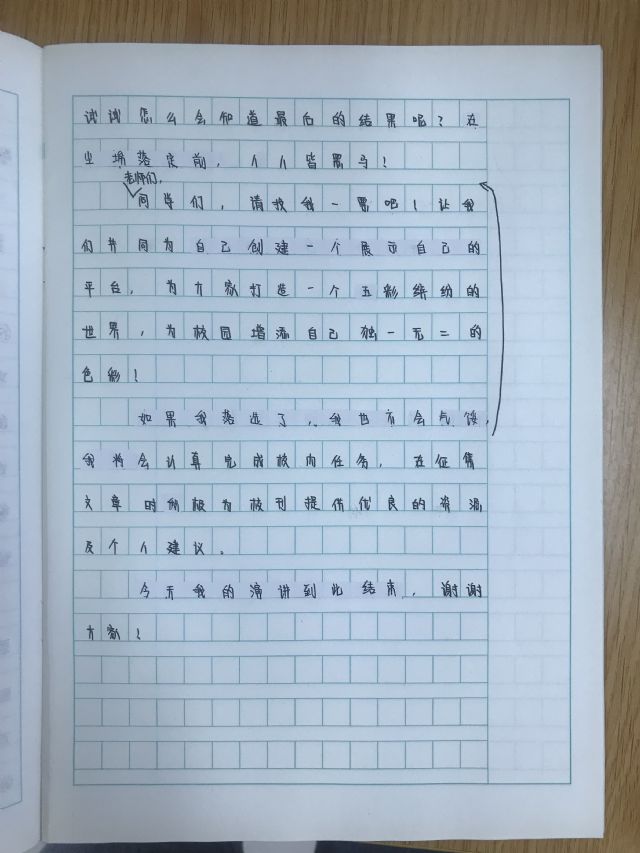 试试怎么会知道最后的结果呢？在
尘埃落定前，人人皆黑马！
老师们，
同学们，请投我一票吧！让我
们共同为自己创建一个展示自己的
平台，为大家打造一个五彩缤纷的
世界，为校园增添自己独一无二的
色彩！
如果我落选了，我也不会气馁，
我将会认真完成校内任务，在征集
文章时积极为校刊提供优良的资源
及个人建议。
今天我的演讲到此结束，谢谢
大家！